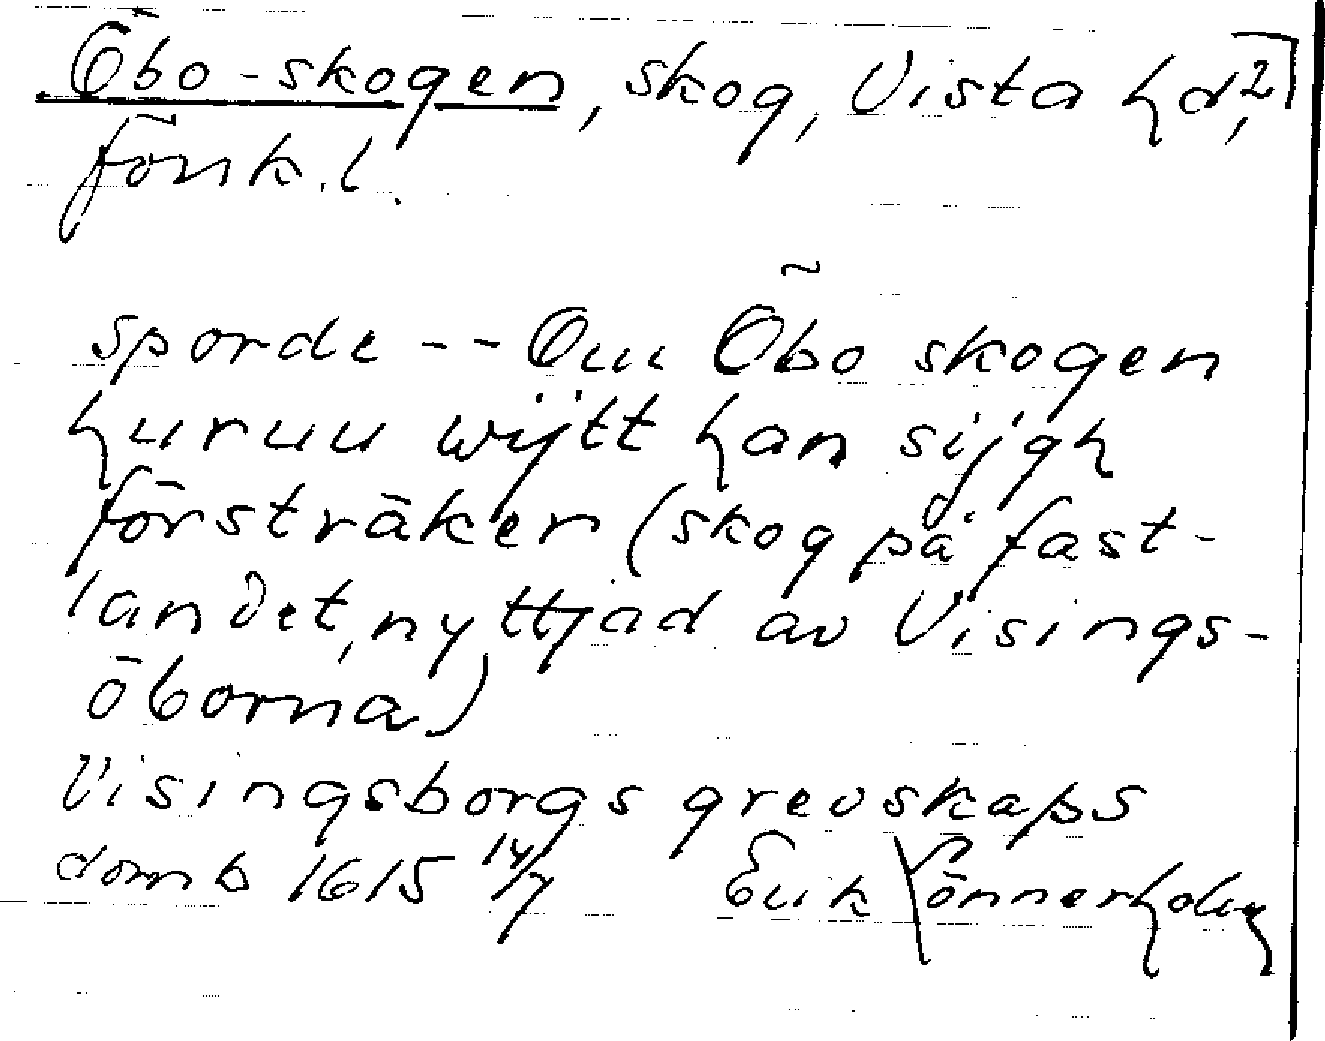 Öbo-skogen, skog, Vista hd, 2
Jönk. l.
sporde -- Om Öbo skogen
huruu wijtt han sijgh
försträker (skog på fast-
landet, nyttjad av Visings-
öborna)
Visingsborgs grevskaps
domb 1615 14/7 Erik Rönnerholm